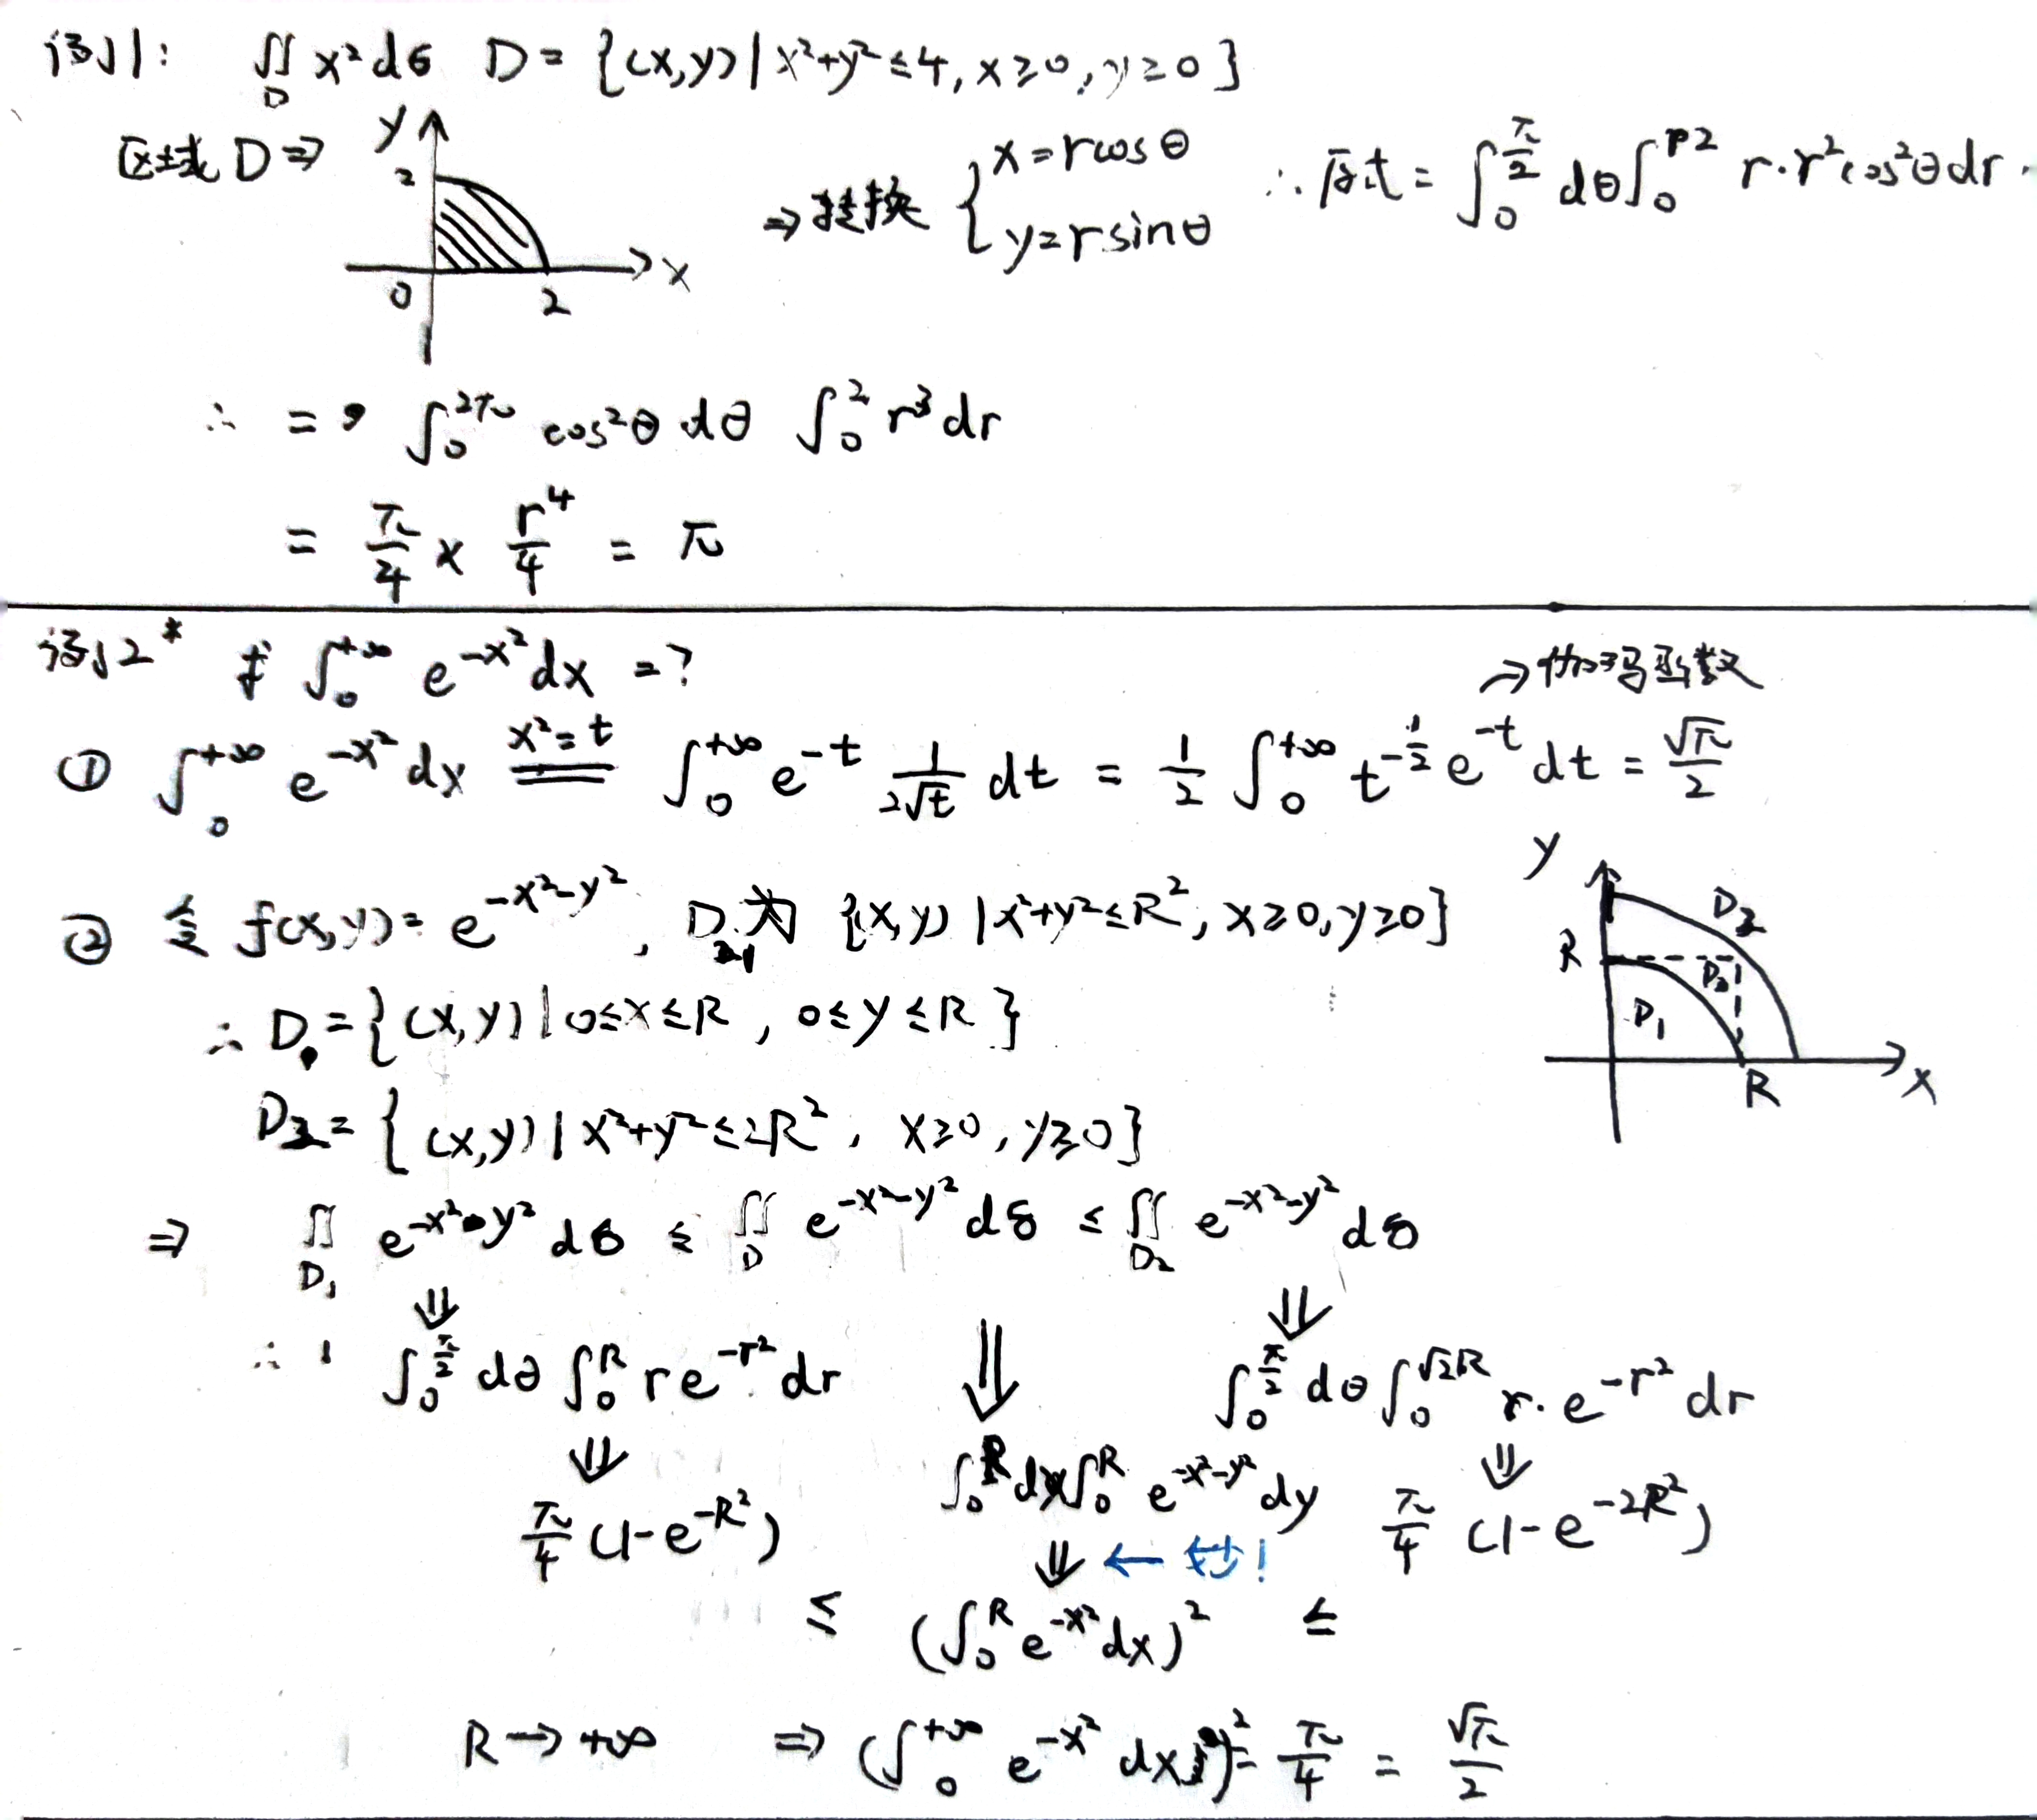 例1: ∬_D x²dσ D = {(x,y) | x²+y²≤4, x≥0, y≥0}
区域 D ⇒ y 2 0 2 x
⇒ 转换 { x=rcosθ y=rsinθ
∴ 原式 = ∫_0^{π/2} dθ ∫_0^2 r·r²cos²θ dr.
∴ = ∫_0^{2π} cos²θ dθ ∫_0^2 r³dr
= π/4 × r⁴/4 = π
例2* 求 ∫_0^{+∞} e^{-x²}dx =?
→ 伽玛函数
① ∫_0^{+∞} e^{-x²}dx \overset{x²=t}{=} ∫_0^{+∞} e^{-t} 1/(2√t) dt = 1/2 ∫_0^{+∞} t^{-1/2} e^{-t} dt = √π/2
② 令 f(x,y) = e^{-x²-y²}, D₁为 {(x,y) | x²+y²≤R², x≥0, y≥0}
y R D₂ D D₁ R x
∴ D = {(x,y) | 0≤x≤R, 0≤y≤R}
D₂ = {(x,y) | x²+y²≤2R², x≥0, y≥0}
⇒ ∬_{D₁} e^{-x²-y²} dσ ≤ ∬_D e^{-x²-y²} dσ ≤ ∬_{D₂} e^{-x²-y²} dσ
⇓ ⇓ ⇓
∴ ∫_0^{π/2} dθ ∫_0^R re^{-r²} dr ∫_0^{π/2} dθ ∫_0^{√2R} r·e^{-r²} dr
⇓ ∫_0^R dx ∫_0^R e^{-x²-y²} dy ⇓
π/4 (1-e^{-R²}) π/4 (1-e^{-2R²})
⇓ ← 妙!
≤ (∫_0^R e^{-x²}dx)² ≤
R → +∞ ⇒ (∫_0^{+∞} e^{-x²} dx)² = π/4 = √π/2